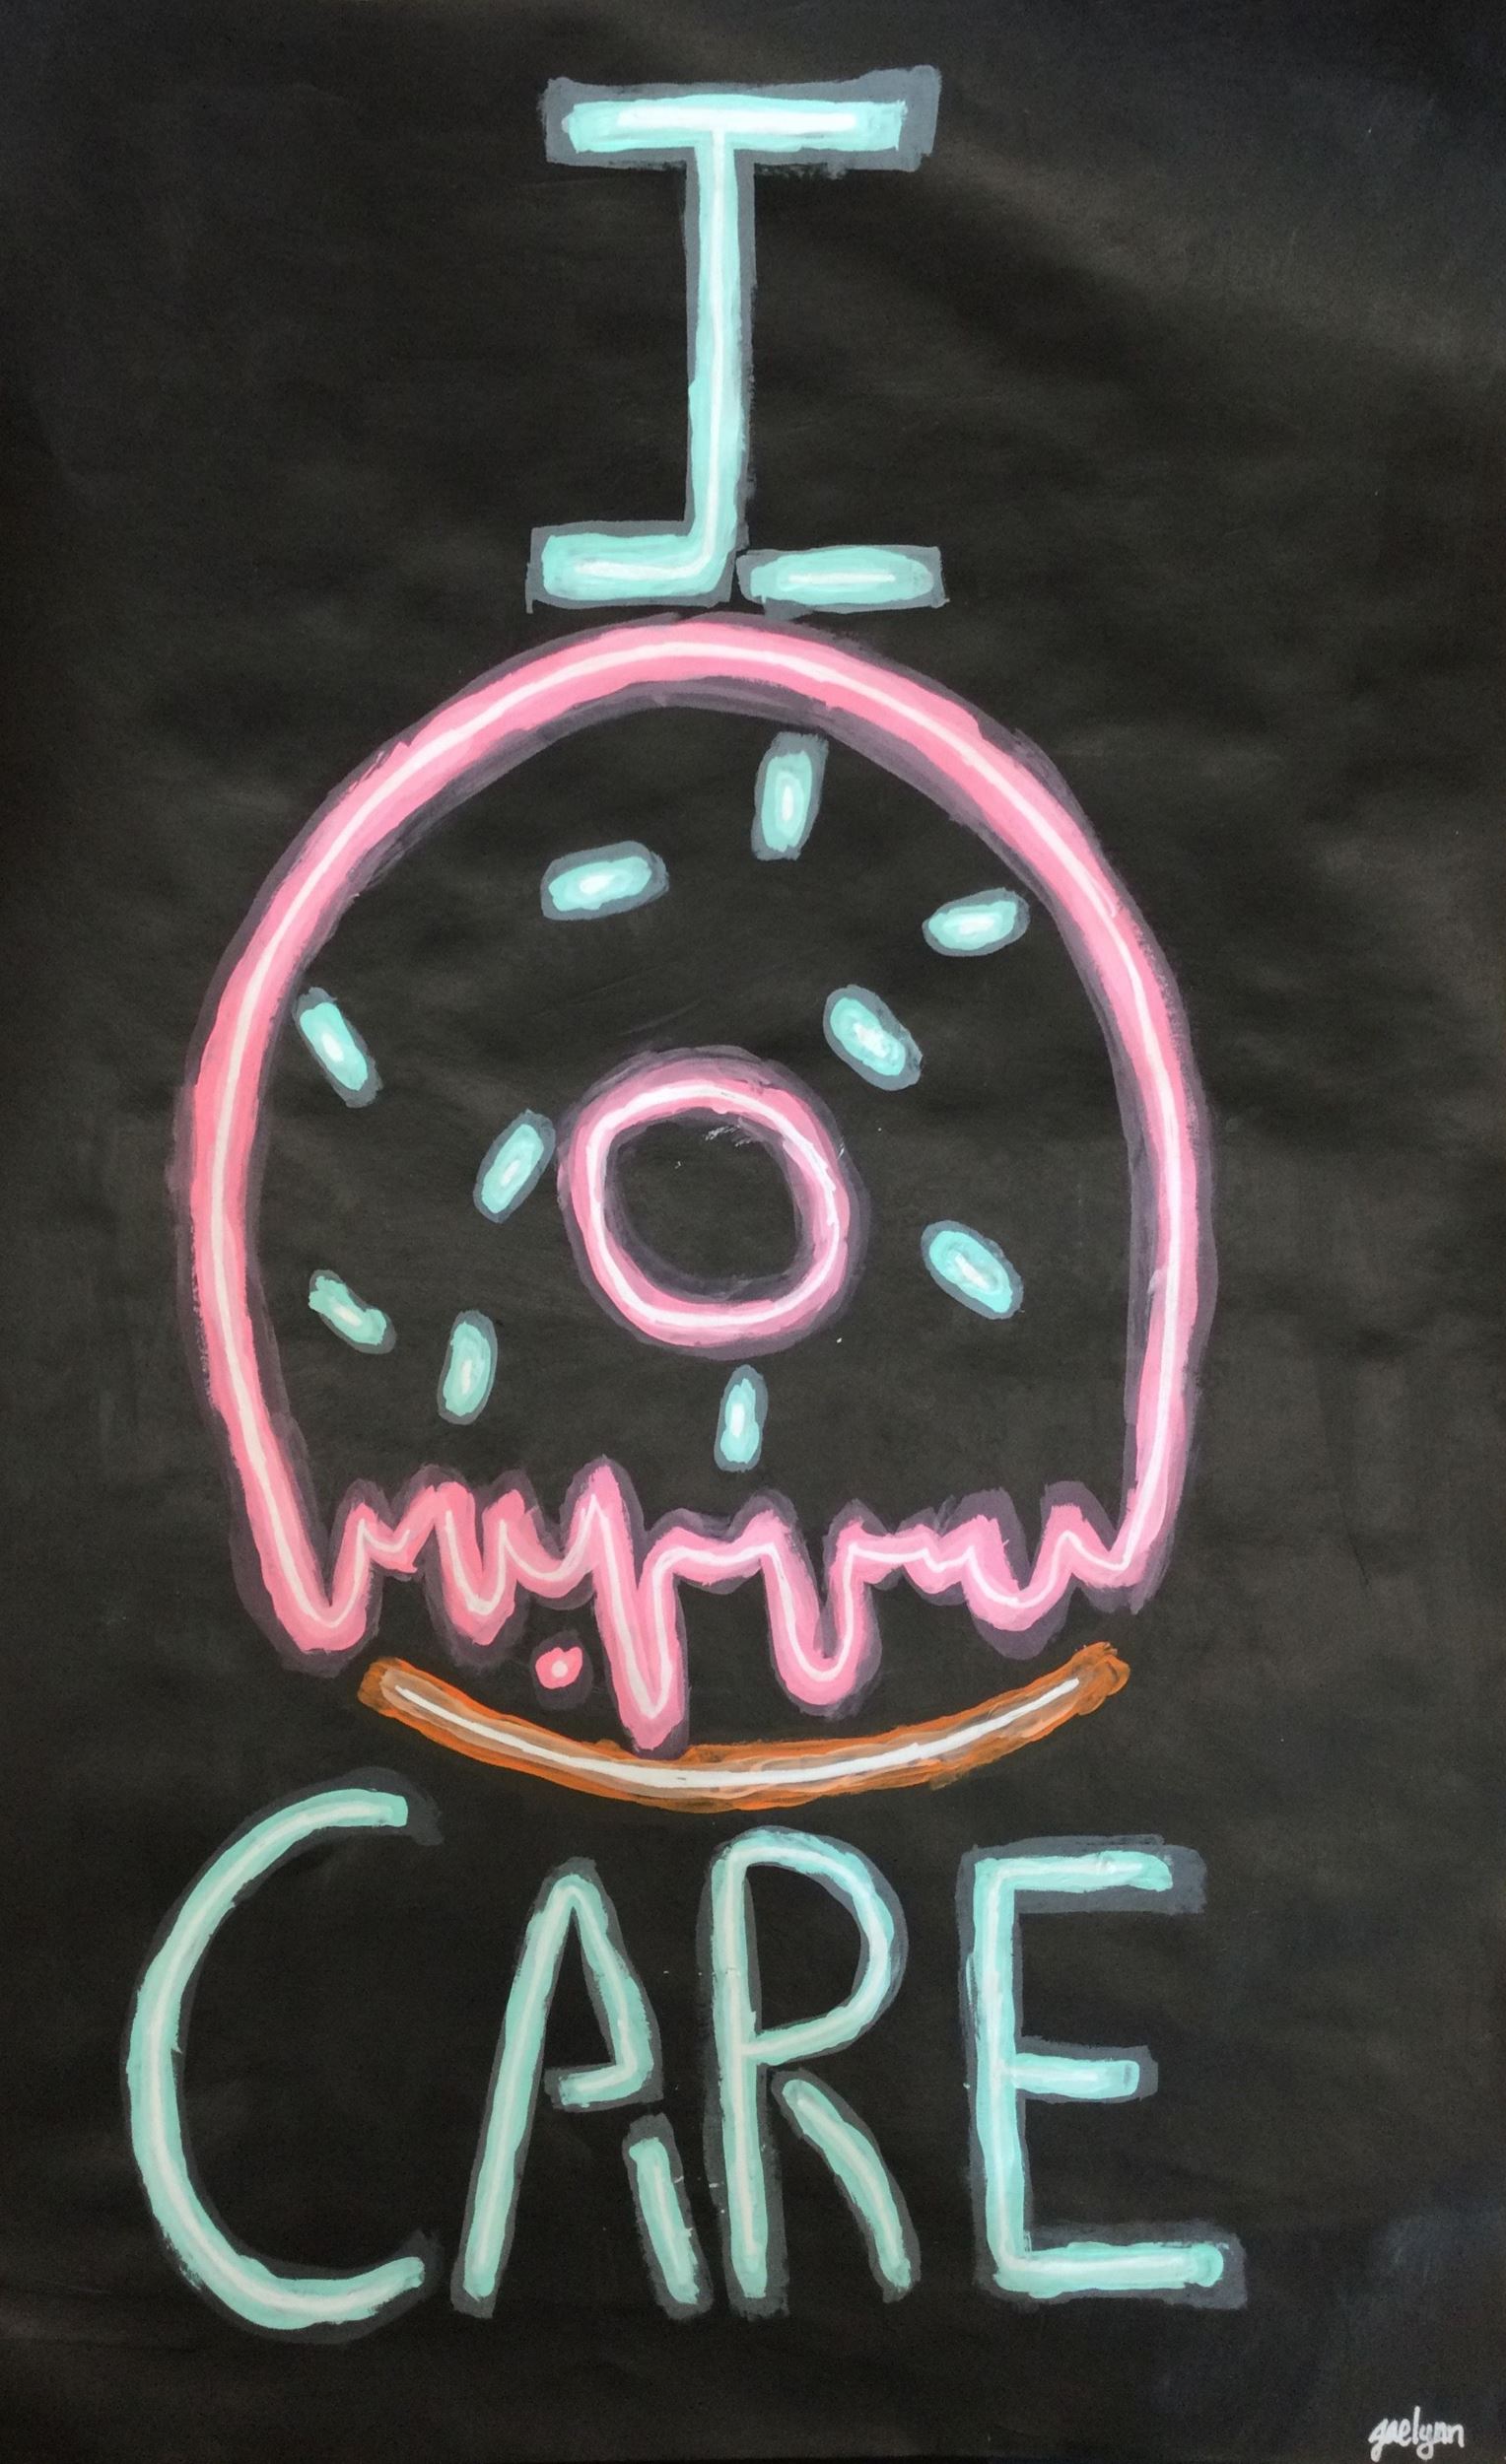 I
CARE
gaelynn